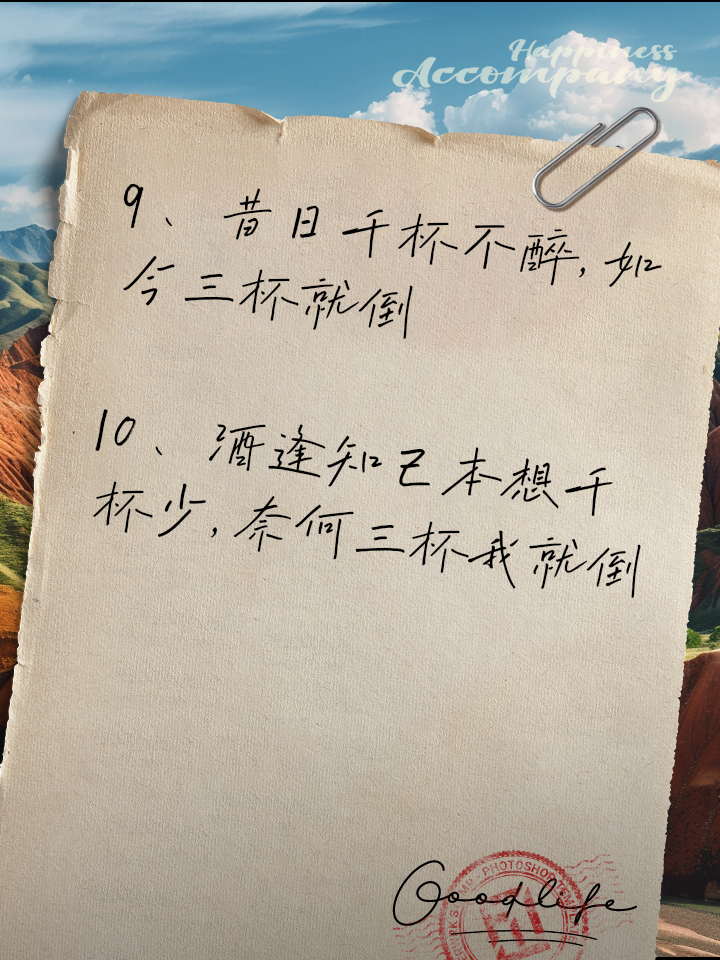 Happiness
Accompany
9、昔日千杯不醉,如
今三杯就倒
10、酒逢知己本想千
杯少,奈何三杯我就倒
PHOTOSHOP
Goodlife